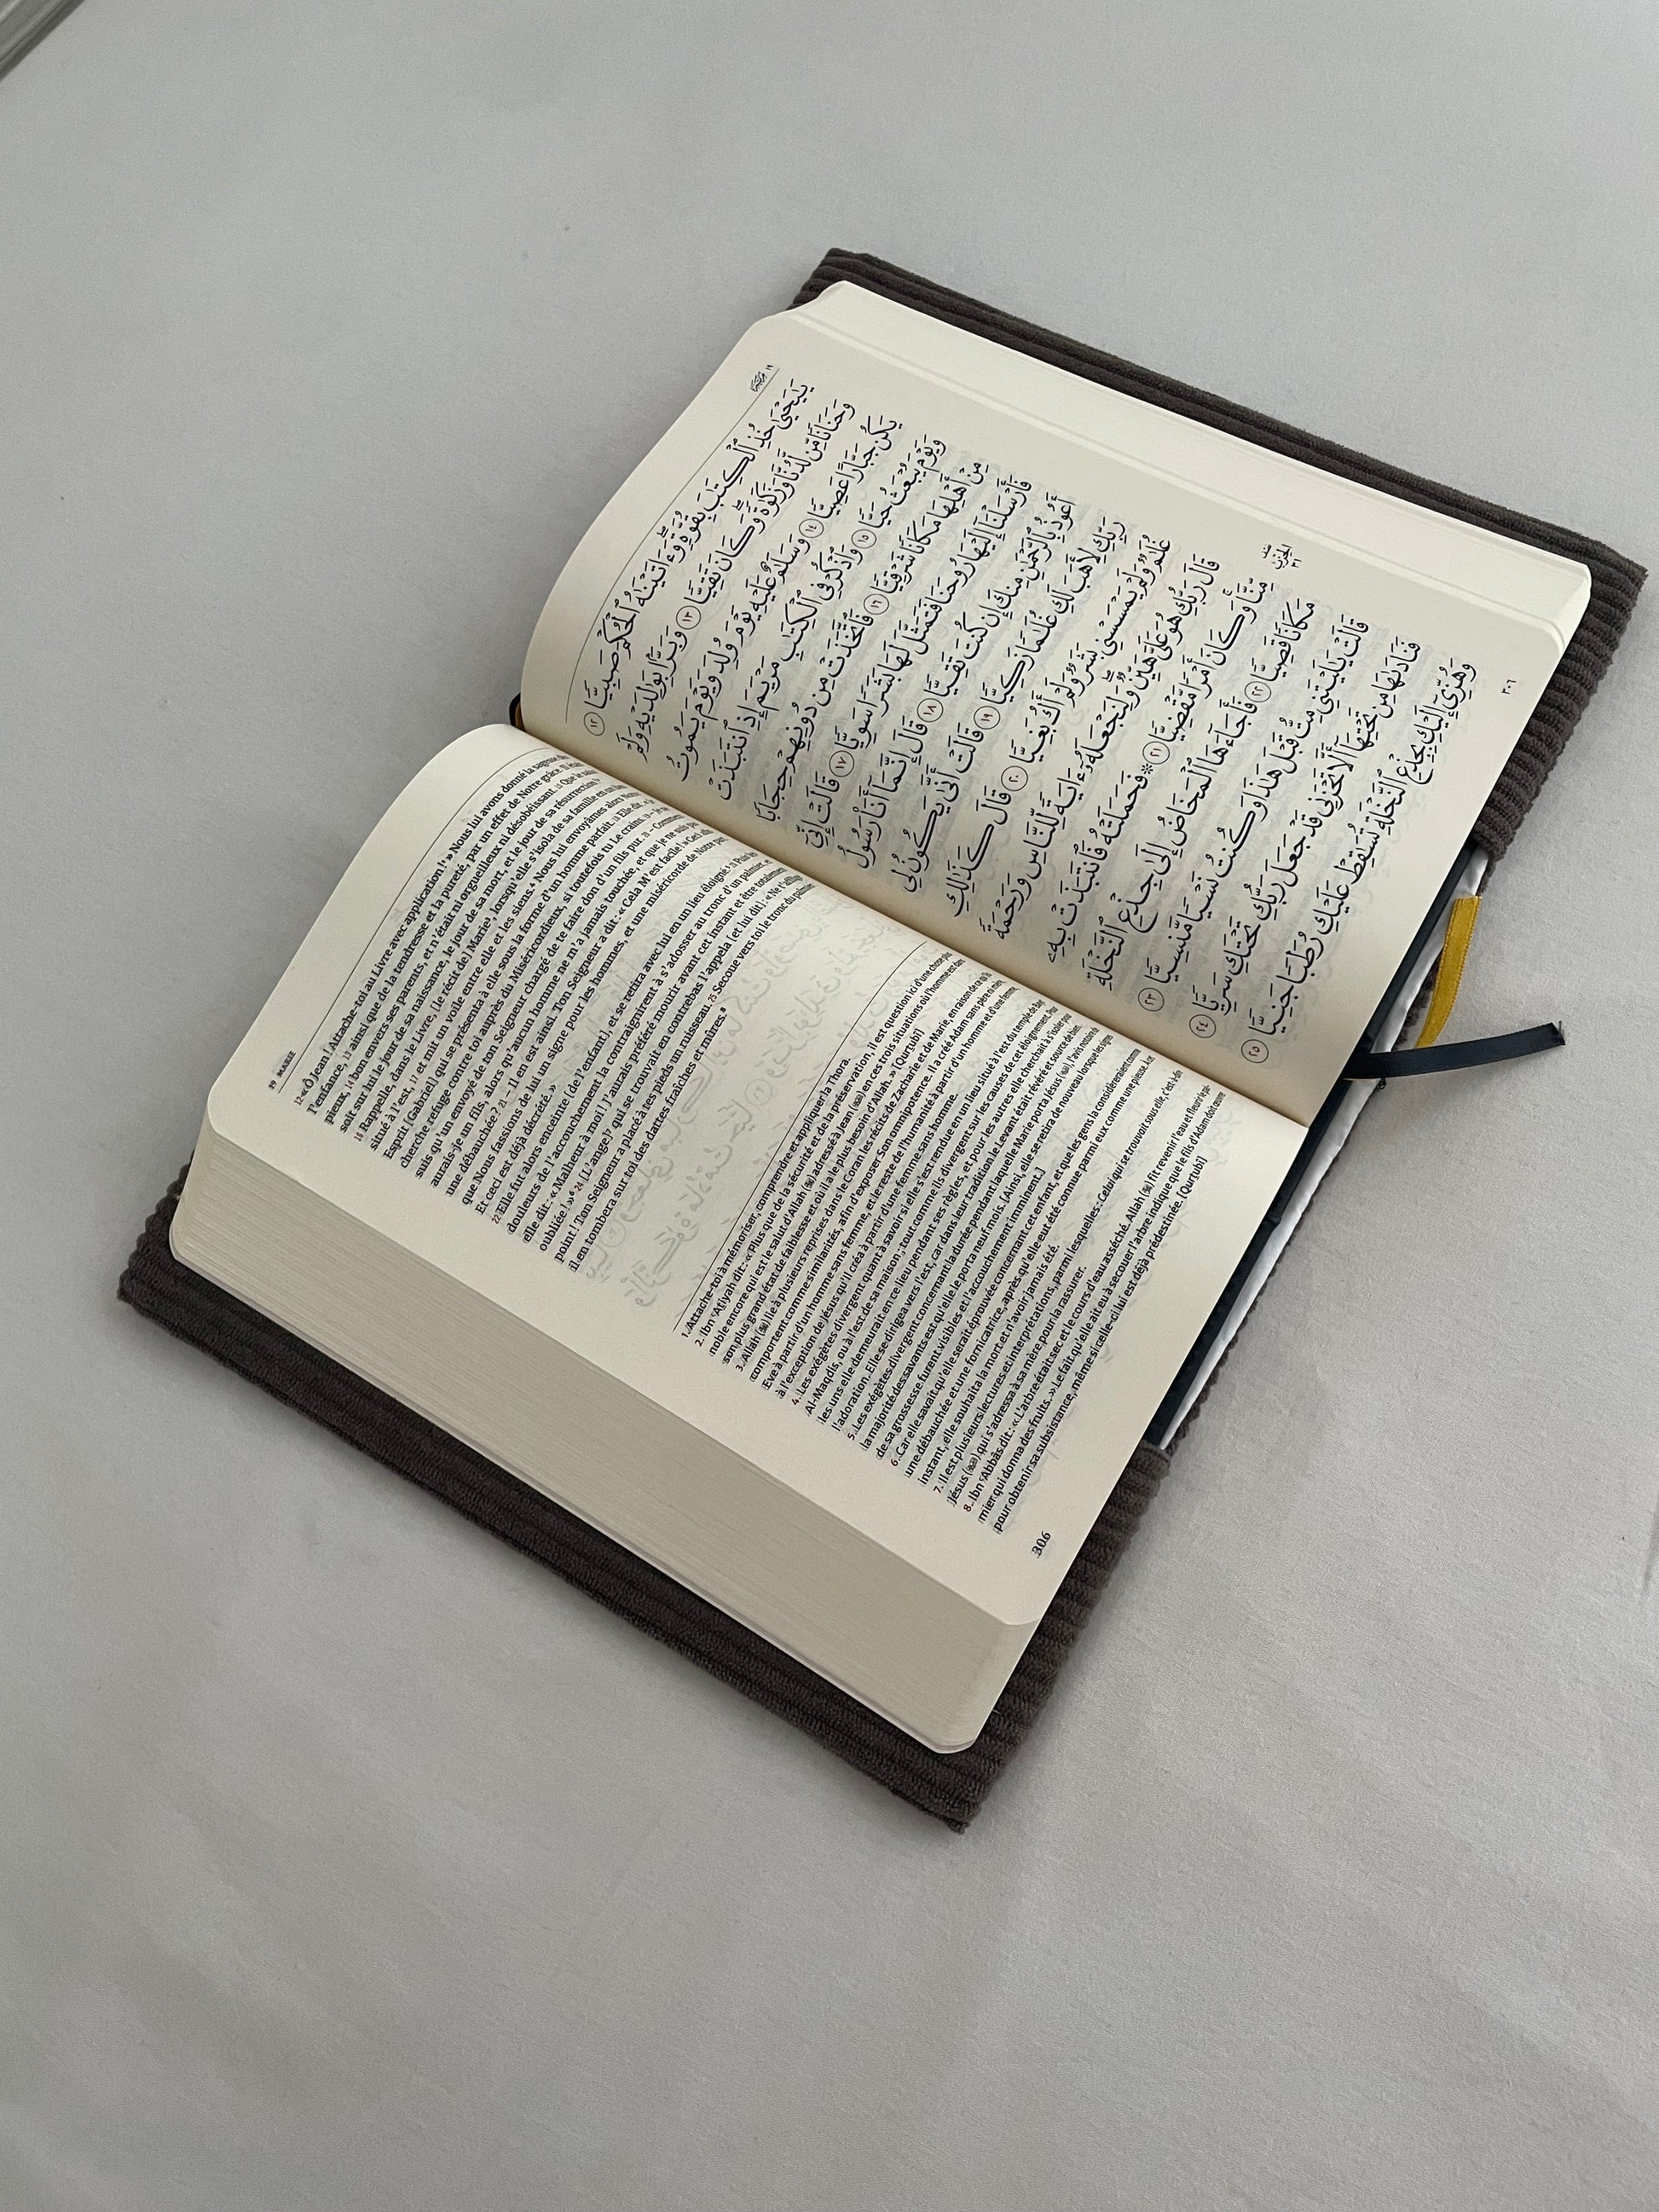 19 MARIE
12 «Ô Jean ! Attache-toi au Livre avec application¹!» Nous lui avons donné la sagesse
l'enfance, 13 ainsi que de la tendresse et la pureté, par un effet de Notre grâce. Il était
pieux, 14 bon envers ses parents, et n'était ni orgueilleux ni désobéissant. 15 Que le
soit sur lui le jour de sa naissance, le jour de sa mort, et le jour de sa résurrection².
16 Rappelle, dans le Livre, [le récit de] Marie³, lorsqu'elle s'isola de sa famille
situé à l'est, 17 et mit un voile entre elle et les siens.⁴ Nous lui envoyâmes alors Notre
Esprit [Gabriel] qui se présenta à elle sous la forme d'un homme parfait. 18 Elle dit: «Je
cherche refuge contre toi auprès du Miséricordieux, si toutefois tu Le crains. 19 – Je ne
suis qu'un envoyé de ton Seigneur chargé de te faire don d'un fils pur. 20 – Comment
aurais-je un fils, alors qu'aucun homme ne m'a jamais touchée, et que je ne suis pas
une débauchée? 21 – Il en est ainsi. Ton Seigneur a dit: «Cela M'est facile!» Ceci afin
que Nous fassions de lui un signe pour les hommes, et une miséricorde de Notre part.
Et ceci est déjà décrété.»
22 Elle fut alors enceinte (de l'enfant), et se retira avec lui en un lieu éloigné.⁵ 23 Puis les
douleurs de l'accouchement la contraignirent à s'adosser au tronc d'un palmier, et
elle dit: «Malheur à moi! J'aurais préféré mourir avant cet instant et être totalement
oubliée!»⁶ 24 [L'ange]⁷ qui se trouvait en contrebas l'appela (et lui dit): «Ne t'afflige
point! Ton Seigneur a placé à tes pieds un ruisseau. 25 Secoue vers toi le tronc du palmier
il en tombera sur toi des dattes fraîches et mûres.⁸
1. Attache-toi à mémoriser, comprendre et appliquer la Thora.
2. Ibn 'Atiyah dit: «Plus que de la sécurité et de la préservation, il est question ici d'une chose plus
noble encore qui est le salut d'Allah (ﷻ) adressé à Jean (﵇) en ces trois situations où l'homme est dans
son plus grand état de faiblesse et où il a le plus besoin d'Allah.» [Qurtubî]
3. Allah (ﷻ) lie à plusieurs reprises dans le Coran les récits de Zacharie et de Marie, en raison de ce qu'ils
comportent comme similarités, afin d'exposer Son omnipotence. Il a créé Adam sans père ni mère,
Eve à partir d'un homme sans femme, et le reste de l'humanité à partir d'un homme et d'une femme
à l'exception de Jésus qu'Il créa à partir d'une femme sans homme.
4. Les exégètes divergent quant à savoir si elle s'est rendue en un lieu situé à l'est du temple de Bayt
Al-Maqdis, ou à l'est de sa maison ; tout comme ils divergent sur les causes de cet éloignement. Pour
les uns elle demeurait en ce lieu pendant ses règles, et pour les autres elle cherchait à s'isoler pour
l'adoration. Elle se dirigea vers l'est, car dans leur tradition le Levant était révéré et source de bien.
5. Les exégètes divergent concernant la durée pendant laquelle Marie porta Jésus (﵇), l'avis notoire de
la majorité des savants est qu'elle le porta neuf mois. [Ainsi, elle se retira de nouveau lorsque les signes
de sa grossesse furent visibles et l'accouchement imminent.]
6. Car elle savait qu'elle serait éprouvée concernant cet enfant, et que les gens la considéreraient comme
une débauchée et une fornicatrice, après qu'elle eut été connue parmi eux comme une pieuse. À cet
instant, elle souhaita la mort et n'avoir jamais été.
7. Il est plusieurs lectures et interprétations, parmi lesquelles : Celui qui se trouvait sous elle, c'est-à-dire
Jésus (﵇) qui s'adressa à sa mère, pour la rassurer.
8. Ibn 'Abbâs dit: «L'arbre était sec et le cours d'eau asséché. Allah (ﷻ) fit revenir l'eau et fleurir le pal-
mier qui donna des fruits.» Le fait qu'elle ait eu à secouer l'arbre indique que le fils d'Adam doit œuvrer
pour obtenir sa subsistance, même si celle-ci lui est déjà prédestinée. [Qurtubî]
306
١٩
يَٰيَحْيَىٰ خُذِ ٱلْكِتَٰبَ بِقُوَّةٍۖ وَءَاتَيْنَٰهُ ٱلْحُكْمَ صَبِيًّا ١٢
وَحَنَانًا مِّن لَّدُنَّا وَزَكَوٰةًۖ وَكَانَ تَقِيًّا ١٣ وَبَرًّۢا بِوَٰلِدَيْهِ وَلَمْ
يَكُن جَبَّارًا عَصِيًّا ١٤ وَسَلَٰمٌ عَلَيْهِ يَوْمَ وُلِدَ وَيَوْمَ يَمُوتُ
وَيَوْمَ يُبْعَثُ حَيًّا ١٥ وَٱذْكُرْ فِى ٱلْكِتَٰبِ مَرْيَمَ إِذِ ٱنتَبَذَتْ
مِنْ أَهْلِهَا مَكَانًا شَرْقِيًّا ١٦ فَٱتَّخَذَتْ مِن دُونِهِمْ حِجَابًا
فَأَرْسَلْنَآ إِلَيْهَا رُوحَنَا فَتَمَثَّلَ لَهَا بَشَرًا سَوِيًّا ١٧ قَالَتْ إِنِّىٓ
أَعُوذُ بِٱلرَّحْمَٰنِ مِنكَ إِن كُنتَ تَقِيًّا ١٨ قَالَ إِنَّمَآ أَنَا۠ رَسُولُ
رَبِّكِ لِأَهَبَ لَكِ غُلَٰمًا زَكِيًّا ١٩ قَالَتْ أَنَّىٰ يَكُونُ لِى
غُلَٰمٌ وَلَمْ يَمْسَسْنِى بَشَرٌ وَلَمْ أَكُ بَغِيًّا ٢٠ قَالَ كَذَٰلِكِ
قَالَ رَبُّكِ هُوَ عَلَىَّ هَيِّنٌۖ وَلِنَجْعَلَهُۥٓ ءَايَةً لِّلنَّاسِ وَرَحْمَةً
مِّنَّاۚ وَكَانَ أَمْرًا مَّقْضِيًّا ٢١ ۞ فَحَمَلَتْهُ فَٱنتَبَذَتْ بِهِۦ
مَكَانًا قَصِيًّا ٢٢ فَأَجَآءَهَا ٱلْمَخَاضُ إِلَىٰ جِذْعِ ٱلنَّخْلَةِ
قَالَتْ يَٰلَيْتَنِى مِتُّ قَبْلَ هَٰذَا وَكُنتُ نَسْيًا مَّنسِيًّا ٢٣
فَنَادَىٰهَا مِن تَحْتِهَآ أَلَّا تَحْزَنِى قَدْ جَعَلَ رَبُّكِ تَحْتَكِ سَرِيًّا ٢٤
وَهُزِّىٓ إِلَيْكِ بِجِذْعِ ٱلنَّخْلَةِ تُسَٰقِطْ عَلَيْكِ رُطَبًا جَنِيًّا ٢٥
٣٠٦